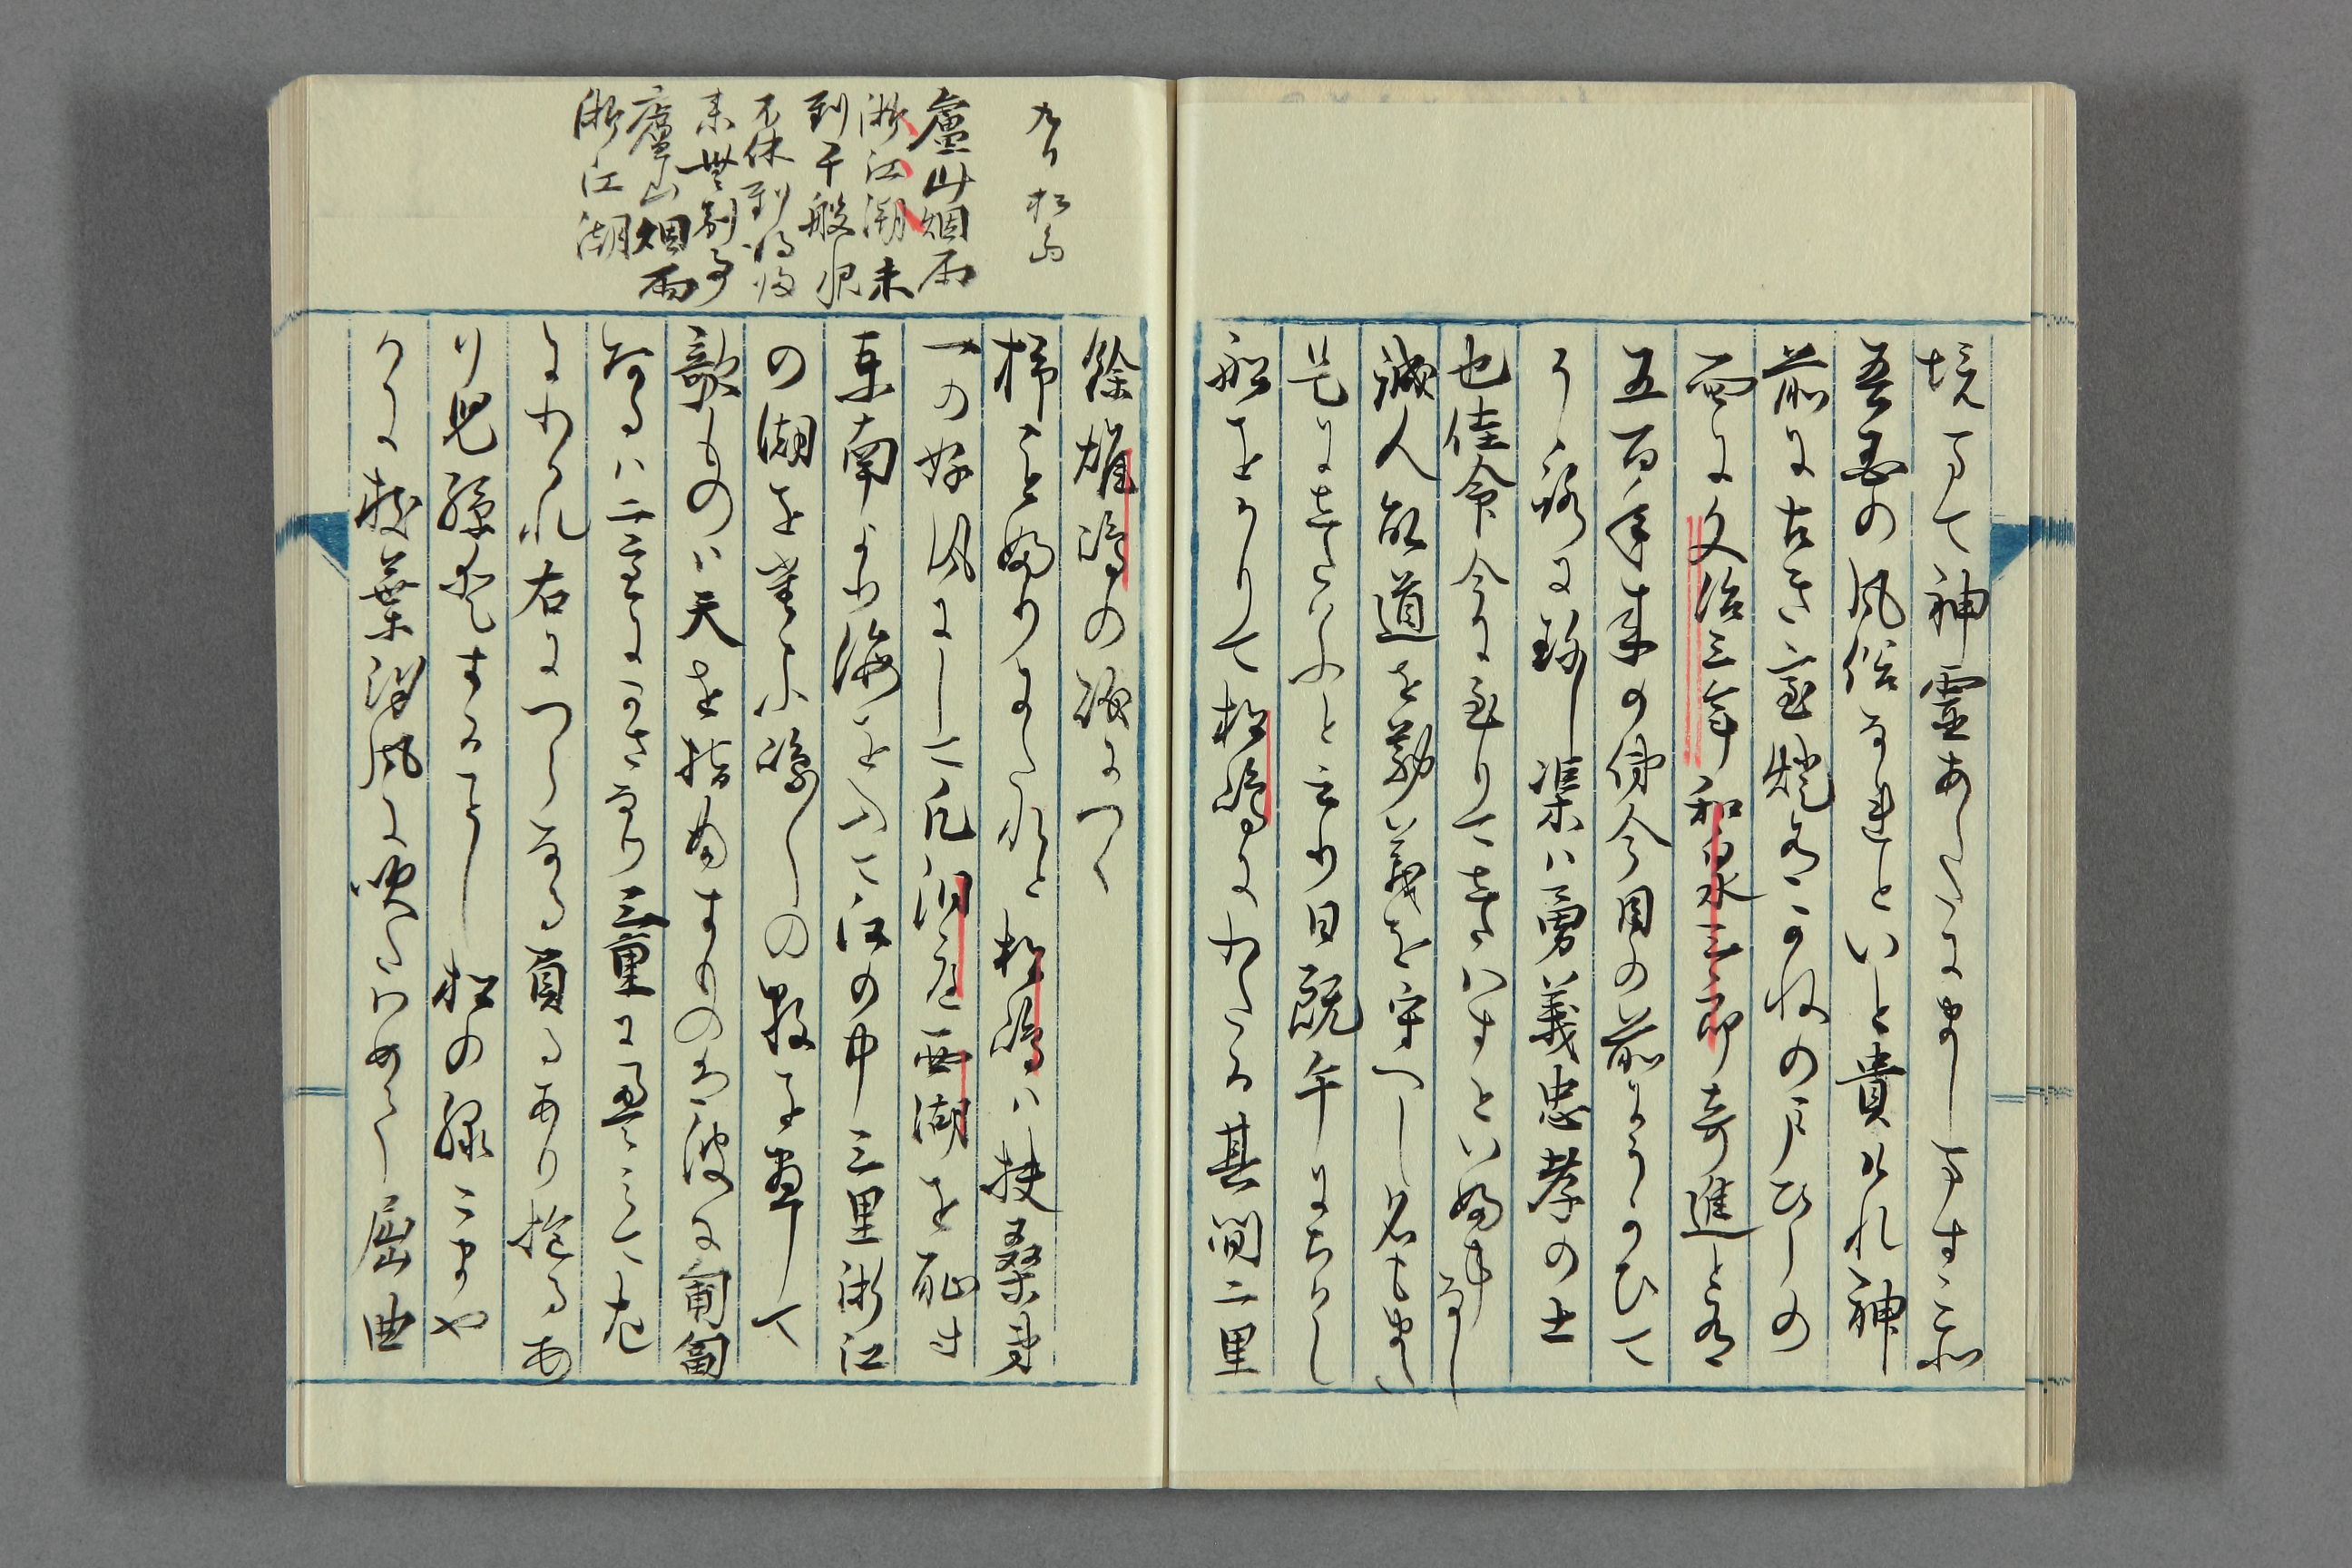 境まて神霊あらたにましますこそ
吾国の風俗なれといと貴けれ神
前に古き宝燈有かねの戸ひらの
面に文治三年和泉三郎寄進と有
五百年来の俤今目の前にうかひて
そゝろに珍し渠は勇義忠孝の士
也佳命今に至りてしたはすといふ事なし
誠人能道を勤義を守へし名もまた
是にしたかふと云り日既午にちかし
船をかりて松嶋にわたる其間二里
餘雄嶋の磯につく
抑ことふりにたれと松嶋は扶桑第
一の好風にして凡洞庭西湖を恥す
東南より海を入て江の中三里浙江
の湖を堪ふ嶋〱の数を尽して
歌ものは天を指ふすものは波に匍匐
あるは二重にかさなり三重に畳みて左
にわかれ右につらなる負るあり抱るあ
り児孫愛することし松の緑こまや
かに枝葉汐風に吹たはめて屈曲
九日松島
廬山烟雨
浙江潮未
到千般恨
不休到得帰
来無別事
廬山烟雨
浙江潮